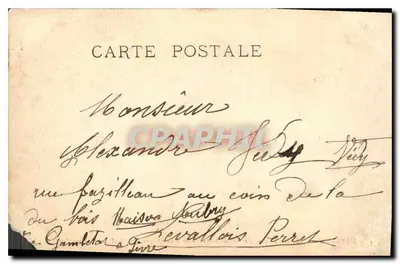 CARTE POSTALE
Monsieur
Alexandre
rue fazilleau au coin de la
du bois Maison
Gambetta a Levallois Perret